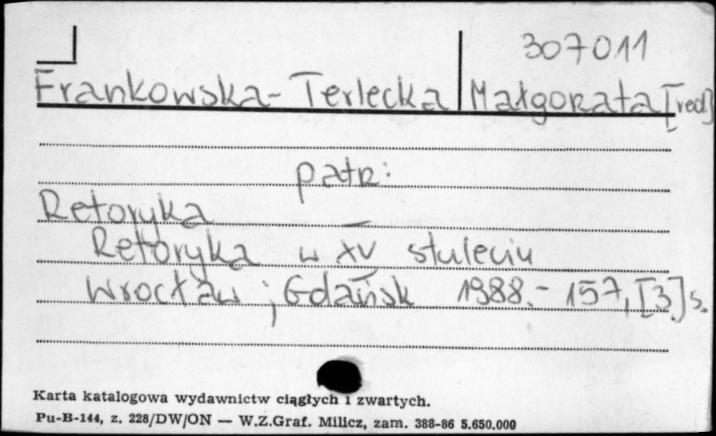 307011
Frankowska-Terlecka Małgorzata [red]
patrz:
Retoryka
Retoryka w XV stuleciu
Wrocław ; Gdańsk 1988.- 157, [3] s.
Karta katalogowa wydawnictw ciągłych i zwartych.
Pu-B-144, z. 228/DW/ON — W.Z.Graf. Milicz, zam. 388-86 5.650.000